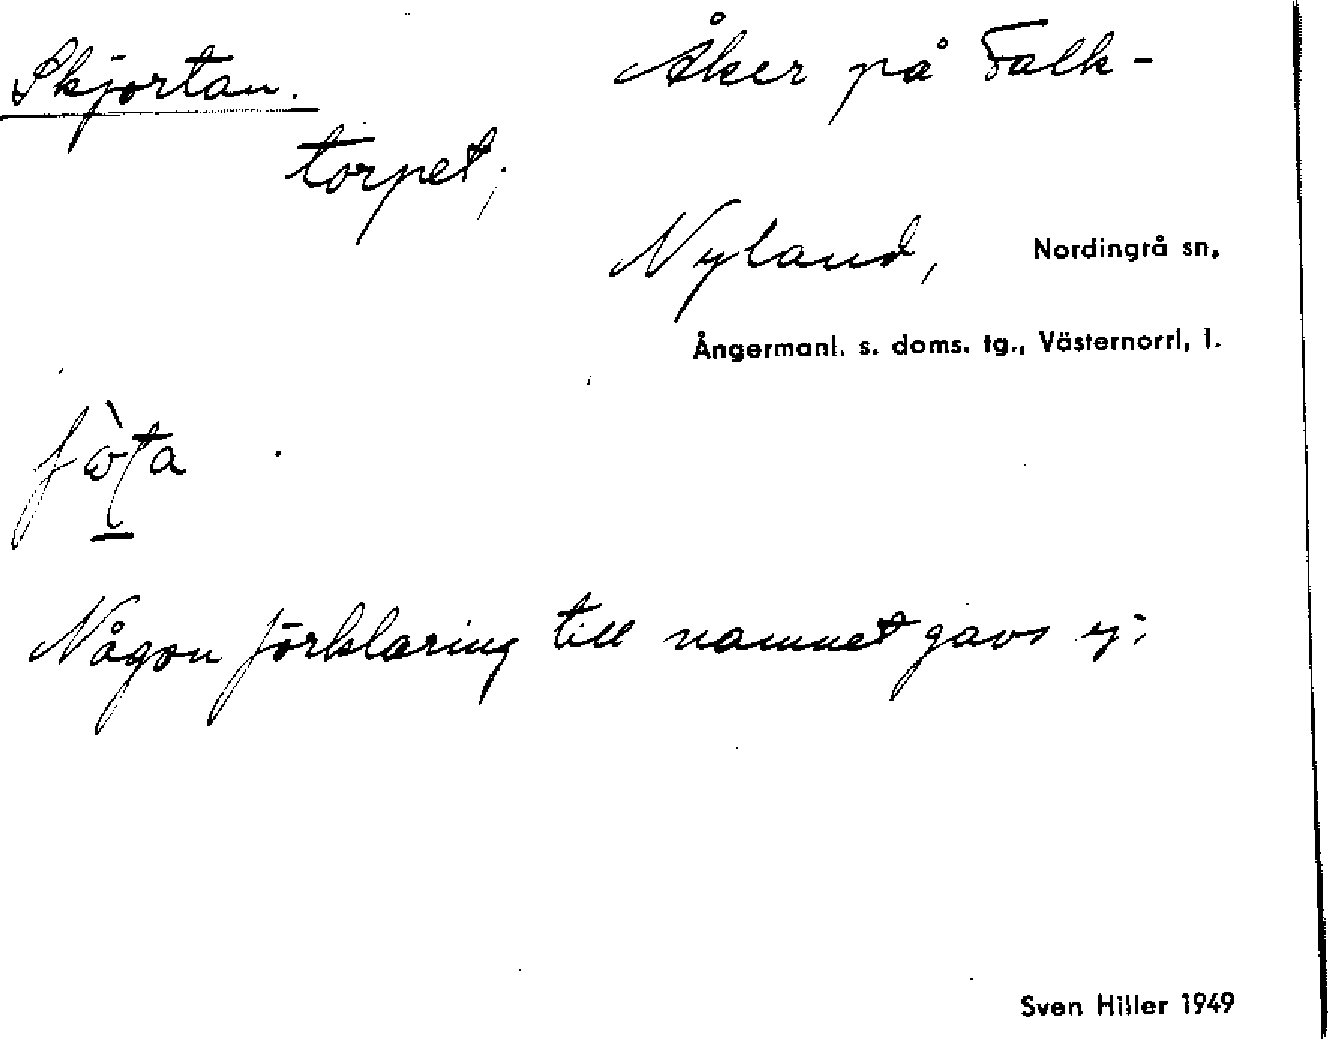 Skjortan. Åker på Falk-
torpet,
Nyland, Nordingrå sn,
Ångermanl. s. doms. tg., Västernorrl, l.
Någon förklaring till namnet gavs ej.
Sven Hiller 1949